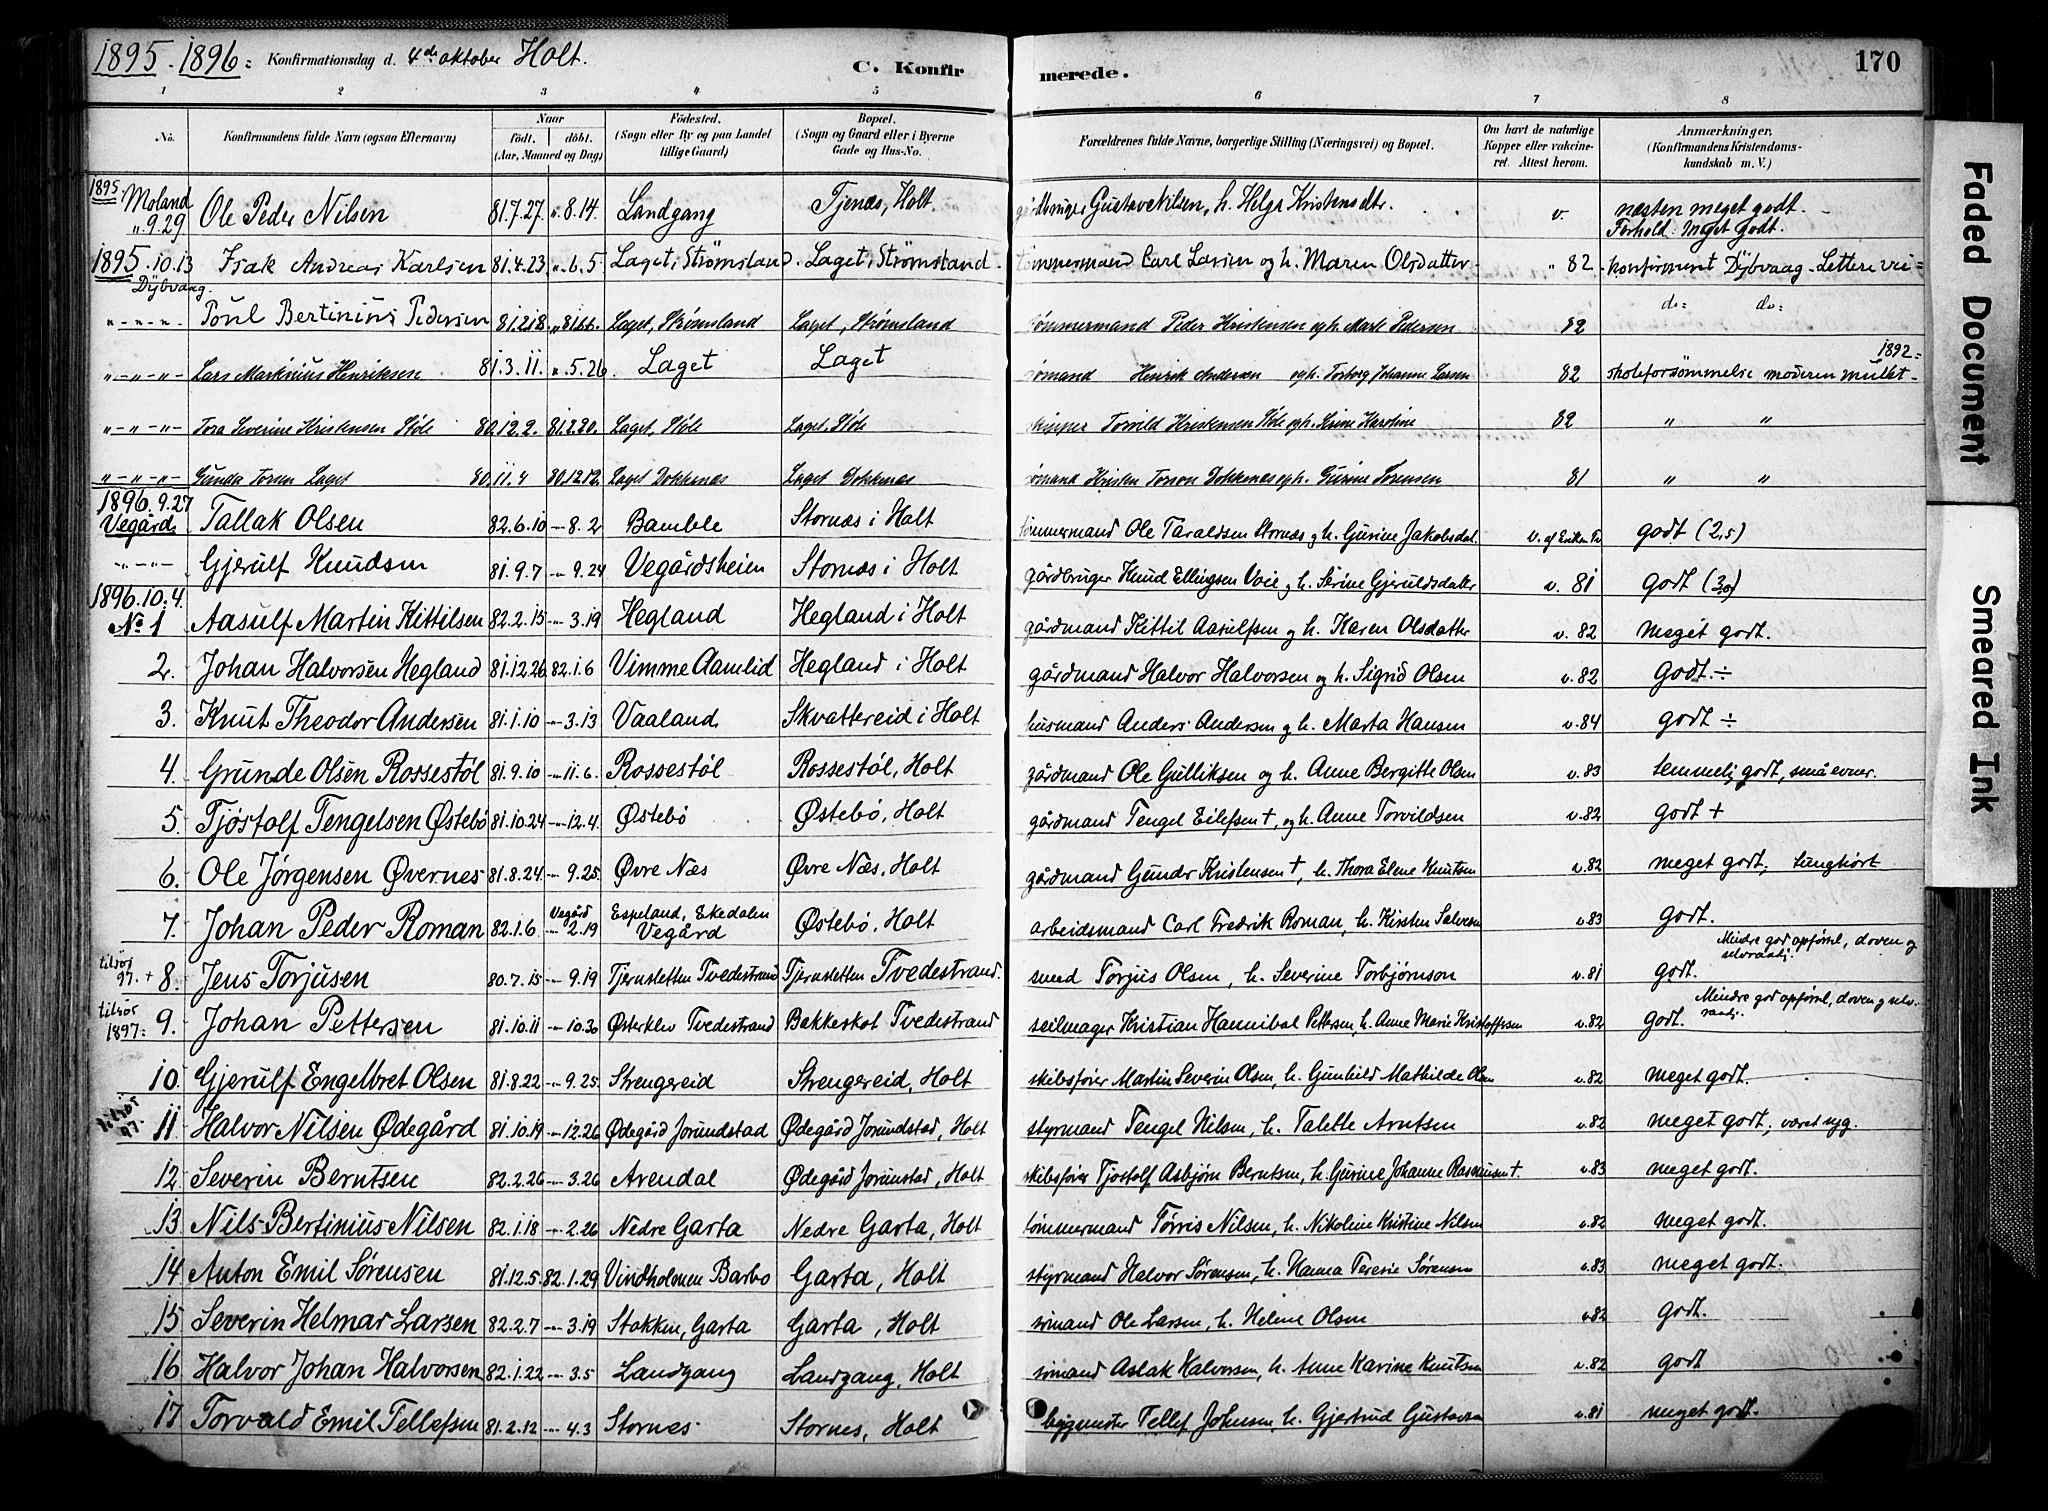 1895-1896 = Konfirmationsdag d. 4de oktober Holt. C. Konfirmerede. 170
1 2 3 4 5 6 7 8
No. Konfirmandens fulde Navn (ogsaa Efternavn) Naar født. døbt. (Aar, Maaned og Dag) Fødested. (Sogn eller By og paa Landet tillige Gaard) Bopæl. (Sogn og Gaard eller i Byerne Gade og Hus-No. Forældrenes fulde Navne, borgerlige Stilling (Næringsvei) og Bopæl. Om havt de naturlige Kopper eller vakcineret. Attest herom. Anmærkninger. (Konfirmandens Kristendomskundskab m. V.)
1895. Moland 9.29 Ole Peder Nilsen 81.7.27 „ 8.14. Landgang Tjenæs, Holt gårdbruger Gustav Nilsen, h. Helga Kristensdtr. v. næsten meget godt. Forhold: meget godt.
1895.10.13 Dybvaag. Isak Andreas Karlsen 81.4.23 „ 6.5 Laget, Strømsland. Laget, Strømsland tømmermand Carl Larsen og h. Maren Olsdatter „ 82 konfirmeret Dybvaag
„-„-„ Poul Bertinius Pedersen Laget, Strømsland Laget, Strømsland tømmermand Peder Kristensen og h. Marte Pedersen 82 do= do=
„-„-„-„ Lars Markvius Henriksen 81.3.11. „ 5.26. Laget Laget sømand Henrik Andersen og h. Torborg Johanne Larsen 82 skoleforsømmelse moderen mulkt 1892=
„-„-„-„ Tora Severine Kristensen Støle 80.12.2. 81.2.20. Laget, Støle Laget, Støle skipper Torvild Kristensen Støle og h. Serine Karoline 82 „ „
„-„-„-„ Gunda Torsen Laget 80.11.4 80.12.12. Laget Dokkenæs Laget Dokkenæs sømand Kristen Torson Dokkenæs og h. Gurine Sørensen 81 „ „
1896.9.27 Vegård. Tallak Olsen 82.6.10 - 8.2 Bamble Stornæs i Holt tømmermand Ole Taraldsen Stornæs og h. Gurine Jakobsdat. v. af godt (2,5)
-„-„- Gjerulf Knudsen 81.9.7 - 9.24 Vegårdsheien Stornæs i Holt gårdbruger Knud Ellingsen Voie og h. Serine Gjeruldsdatter v. 81 godt (3,0)
1896.10.4. No 1 Aasulf Martin Kittilsen 82.2.15 - 3.19 Hegland Hegland i Holt gårdmand Kittil Aasulfsen og h. Karen Olsdatter v. 82 meget godt.
2. Johan Halvorsen Hegland 81.12.26 82.1.6 Vimme Aamlid Hegland i Holt gårdmand Halvor Halvorsen og h. Sigrid Olsen v. 82 godt. ÷
3. Knut Theodor Andersen 81.1.10 - 3.13 Vaaland Skvattereid i Holt husmand Anders Andersen og h. Marta Hansen v. 84 godt ÷
4. Grunde Olsen Rossestøl 81.9.10 - 11.6. Rossestøl Rossestøl, Holt gårdmand Ole Gulliksen og h. Anne Bergitte Olsen v. 83 temmelig godt, små evner.
5. Tjøstolf Tengelsen Østebø 81.10.24 - 12.4. Østebø Østebø, Holt gårdmand Tengel Eilefsen †, og h. Anne Torvildsen v. 82 godt +
6. Ole Jørgensen Øvernes 81.8.24. - 9.25. Øvre Næs Øvre Næs, Holt gårdmand Gunder Kristensen †, h. Thora Elene Knutsen v. 82 meget godt; tunghørt
7. Johan Peder Roman 82.1.6. Vegård - 2.19 Espeland, Ekedalen Vegård Østebø, Holt arbeidsmand Carl Fredrik Roman, h. Kirsten Salvesen v. 83 godt.
tilsjøs 97. + 8. Jens Torjusen 80.7.15 - 9.19 Tjernsletten Tvedestrand Tjernsletten Tvedestrand. smed Torjus Olsen, h. Severine Torbjørnson v. 81 godt. Mindre god opførsel, doven og selvraadig.
tilsjøs 1897: 9. Johan Pettersen 81.10.11 - 10.30 Østerklev Tvedestrand Bakkeskot Tvedestrand seilmager Kristian Hannibal Pettersen, h. Anne Marie Kristoffersen v. 82 godt. Mindre god opførsel, doven og selvraadig.
10. Gjerulf Engelbret Olsen 81.8.22 - 9.25. Strengereid Strengereid, Holt skibsfører Martin Severin Olsen, h. Gunhild Mathilde Olsen v. 82 meget godt.
tilsjøs 97. 11 Halvor Nilsen Ødegård 81.10.19 - 12.26 Ødegård Jorundstad Ødegård Jorundstad, Holt styrmand Tengel Nilsen, h. Talette Arntsen v. 82 meget godt, været syg.
12. Severin Berntsen 82.2.26 - 3.26 Arendal Ødegård Jorunstad, Holt skibsfører Tjostolf Asbjørn Berntsen, h. Gurine Johanne Rasmussen † v. 83 meget godt.
13. Nils Bertinius Nilsen 82.1.18 - 2.26 Nedre Garta Nedre Garta, Holt tømmermand Tørris Nilsen, h. Nikoline Kristine Nilsen v. 82 meget godt.
14 Anton Emil Sørensen 81.12.5 82.1.29 Vindholmen Barbo Garta, Holt styrmand Halvor Sørensen, h. Hanna Terese Sørensen v. 83 meget godt.
15 Severin Helmar Larsen 82.2.7 - 3.19 Stokken, Garta Garta, Holt sømand Ole Larsen, h. Helene Olsen v. 82 godt.
16 Halvor Johan Halvorsen 82.1.22 - 3.5 Landgang Landgang, Holt sømand Aslak Halvorsen, h. Anne Karine Knutsen v. 82 godt
17 Torvald Emil Tellefsen 81.2.12 - 4.3 Stornes Stornes, Holt byggmester Tellef Johnsen, h. Gjertrud Gustavsen v. 81 meget godt.
Faded Document
Smeared Ink